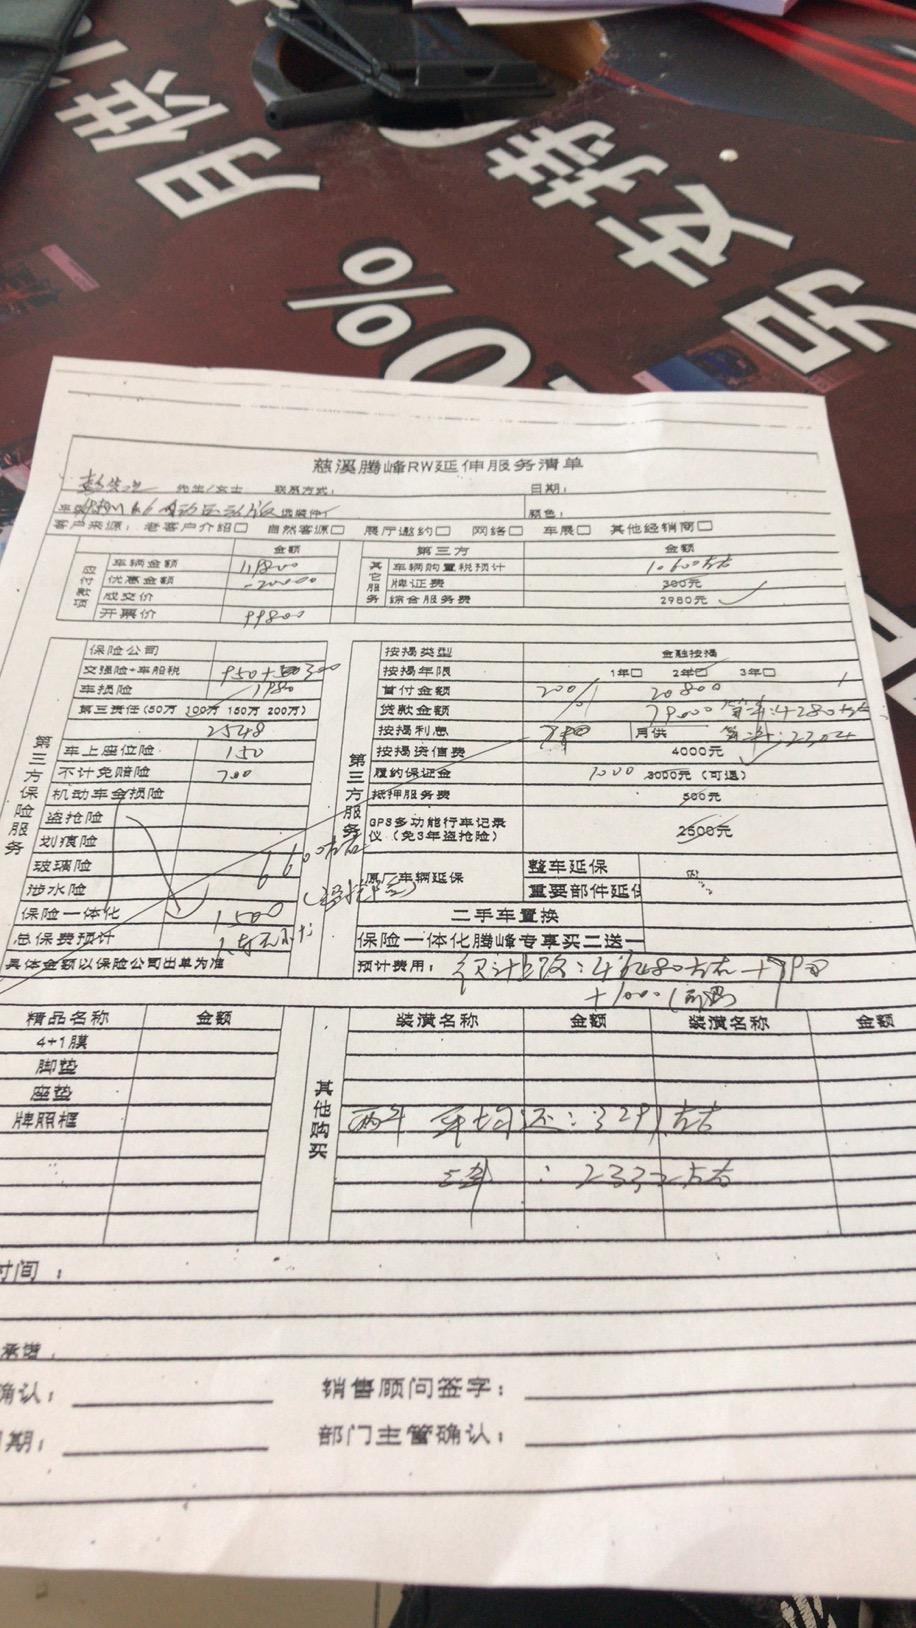 月供
支持
0%
另
慈溪腾峰RW延伸服务清单
先生/女士 联系方式： 日期：
选装件： 颜色：
客户来源：老客户介绍□ 自然客源□ 展厅邀约□ 网络□ 车展□ 其他经销商□
应付款项
金额
车辆金额
优惠金额 -20000
成交价
开票价 99800
其它服务
第三方 金额
车辆购置税预计 10600左右
牌证费 300元
综合服务费 2980元
第三方保险服务
保险公司
交强险+车船税 950+300
车损险 1980
第三责任(50万 100万 150万 200万)
2548
车上座位险 150
不计免赔险 700
机动车全损险
盗抢险
划痕险
玻璃险 6600左右
涉水险
保险一体化 1500
总保费预计
具体金额以保险公司出单为准
第三方服务
按揭类型 金融按揭
按揭年限 1年□ 2年□ 3年□
首付金额 20% 20800
贷款金额 79000
按揭利息 月供
按揭资信费 4000元
履约保证金 1000 3000元(可退)
抵押服务费 500元
GPS多功能行车记录
仪(免3年盗抢险) 2500元
原厂车辆延保 整车延保
重要部件延保
二手车置换
保险一体化腾峰专享买二送一
预计费用：
精品名称 金额
4+1膜
脚垫
座垫
牌照框
其他购买
装潢名称 金额 装潢名称 金额
两年 还：3291左右
三年：2332左右
时间：
承诺
确认：
销售顾问签字：
日期：
部门主管确认：